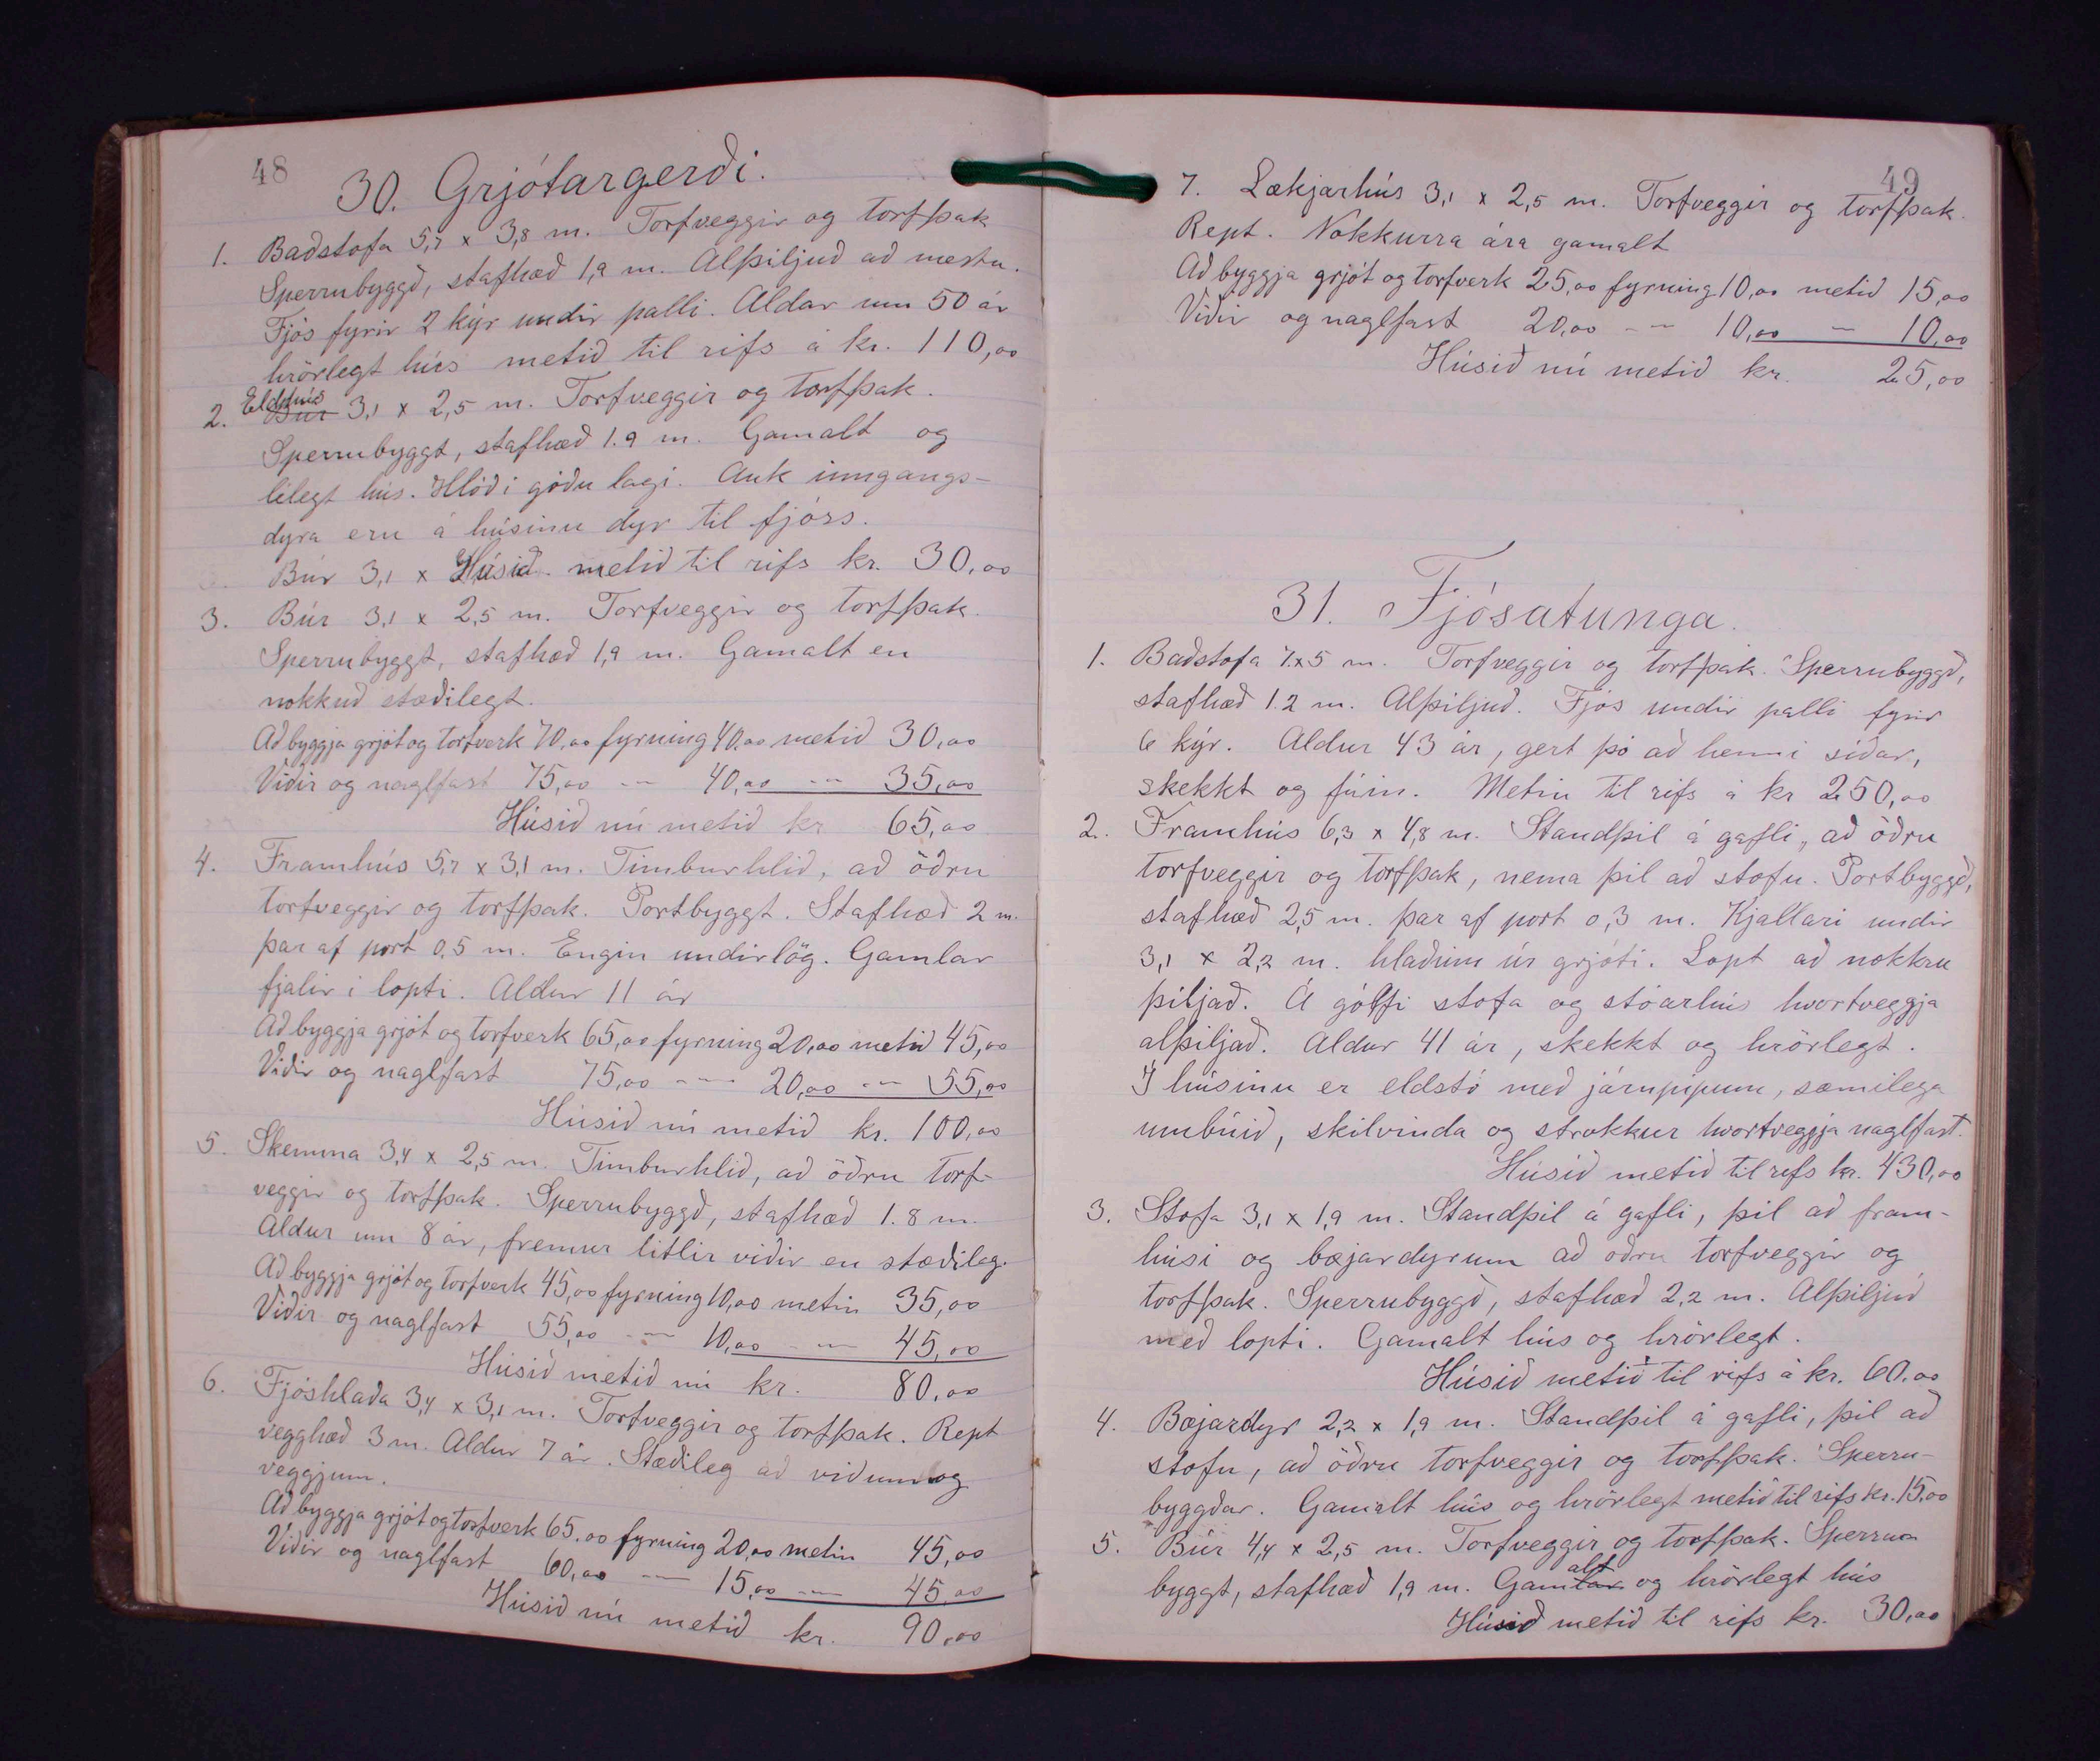 48
30. Grjótargerði.
1. Baðstofa 5,7 x 3,8 m. Torfveggir og torfþak
Sperrubyggð, stafhæð 1,9 m. Alþiljuð að mestu.
Fjós fyrir 2 kýr undir palli. Aldar um 50 ár
hrörlegt hús metið til rifs á kr. 110,00
Eldhús
2. Búr 3,1 x 2,5 m. Torfveggir og torfþak.
Sperrubyggt, stafhæð 1.9 m. Gamalt og
lélegt hús. Hlóð í góðu lagi. Auk inngangs-
dyra eru á húsinu dyr til fjóss.
Búr 3,1 x Húsið metið til rifs kr. 30,00
3. Búr 3,1 x 2,5 m. Torfveggir og torfþak.
Sperrubyggt, stafhæð 1,9 m. Gamalt en
nokkuð stæðilegt.
Að byggja grjót og torfverk 70,00 fyrning 40,00 metið 30,00
Viðir og naglfast 75,00 — 40,00 — 35,00
Húsið nú metið kr 65,00
4. Framhús 5,7 x 3,1 m. Timburhlið, að öðru
torfveggir og torfþak. Portbyggt. Stafhæð 2 m.
þar af port 0,5 m. Engin undirlög. Gamlar
fjalir í lopti. Aldur 11 ár
Að byggja grjót og torfverk 65,00 fyrning 20,00 metið 45,00
Viðir og naglfast 75,00 — 20,00 — 55,00
Húsið nú metið kr. 100,00
5. Skemma 3,4 x 2,5 m. Timburhlið, að öðru torf-
veggir og torfþak. Sperrubyggð, stafhæð 1.8 m.
Aldur um 8 ár, fremur litlir viðir en stæðileg.
Að byggja grjót og torfverk 45,00 fyrning 10,00 metin 35,00
Viðir og naglfast 55,00 — 10,00 — 45,00
Húsið metið nú kr. 80,00
6. Fjóshlaða 3,4 x 3,1 m. Torfveggir og torfþak. Rept
vegghæð 3 m. Aldur 7 ár. Stæðileg að viðum og
veggjum.
Að byggja grjót og torfverk 65,00 fyrning 20,00 metin 45,00
Viðir og naglfast 60,00 — 15,00 — 45,00
Húsið nú metið kr. 90,00
49
7. Lækjarhús 3,1 x 2,5 m. Torfveggir og torfþak.
Rept. Nokkurra ára gamalt
Að byggja grjót og torfverk 25,00 fyrning 10,00 metið 15,00
Viðir og naglfast 20,00 — 10,00 — 10,00
Húsið nú metið kr. 25,00
31. Fjósatunga.
1. Baðstofa 7x5 m. Torfveggir og torfþak. Sperrubyggð,
stafhæð 1.2 m. Alþiljuð. Fjós undir palli fyrir
6 kýr. Aldur 43 ár, gert þó að henni síðar,
skekkt og fúin. Metin til rifs á kr 250,00
2. Framhús 6,3 x 4,8 m. Standþil á gafli, að öðru
torfveggir og torfþak, nema þil að stofu. Portbyggð,
stafhæð 2,5 m. þar af port 0,3 m. Kjallari undir
3,1 x 2,2 m. hlaðinn úr grjóti. Lopt að nokkru
þiljað. Á gólfi stofa og stóarhús hvortveggja
alþiljað. Aldur 41 ár, skekkt og hrörlegt.
Í húsinu er eldstó með járnpípum, sæmilega
umbúið, skilvinda og strokkur hvortveggja naglfast.
Húsið metið til rifs kr. 430,00
3. Stofa 3,1 x 1,9 m. Standþil á gafli, þil að fram-
húsi og bæjardyrum að öðru torfveggir og
torfþak. Sperrubyggð, stafhæð 2,2 m. Alþiljuð
með lopti. Gamalt hús og hrörlegt.
Húsið metið til rifs á kr. 60,00
4. Bæjardyr 2,2 x 1,9 m. Standþil á gafli, þil að
stofu, að öðru torfveggir og torfþak. Sperru-
byggðar. Gamalt hús og hrörlegt metið til rifs kr. 15,00
5. Búr 4,4 x 2,5 m. Torfveggir og torfþak. Sperru-
alt
byggt, stafhæð 1,9 m. Gamlar og hrörlegt hús
Húsið metið til rifs kr. 30,00